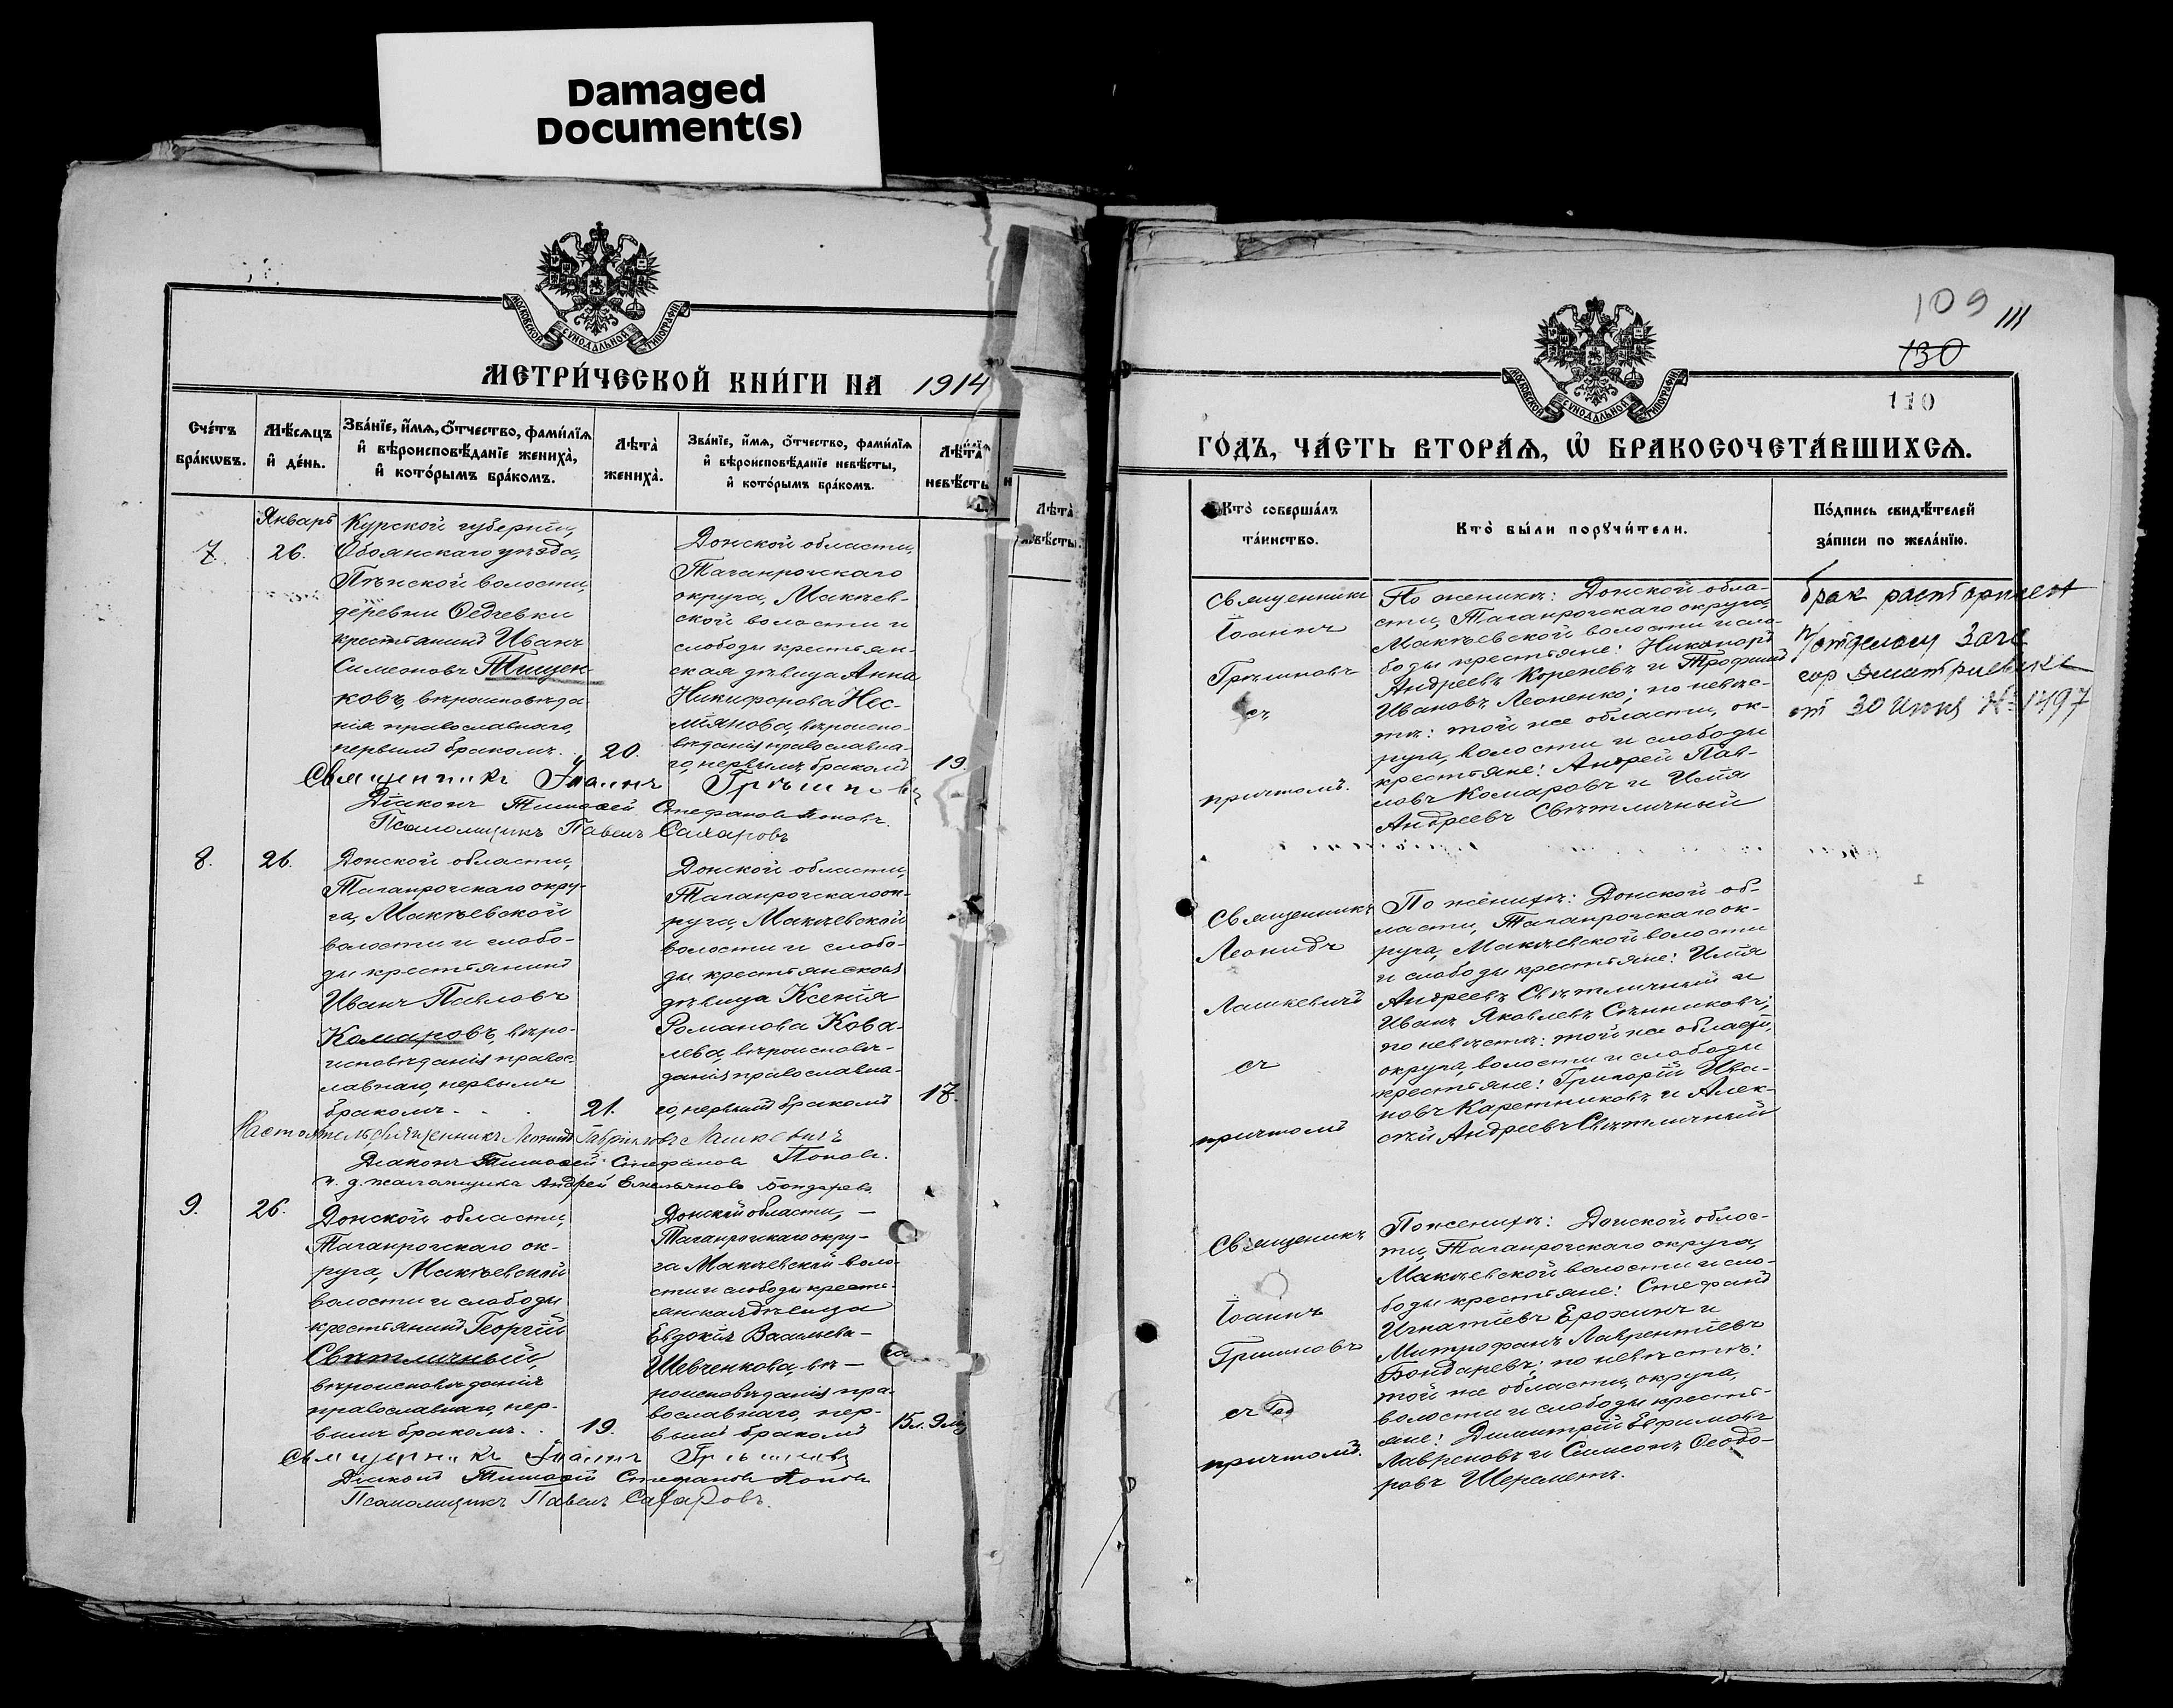 Damaged
Document(s)
МОСКОВСКОЙ СѴНОДАЛЬНОЙ ТИПОГРАФІИ
МЕТРИ́ЧЕСКОЙ КНИ́ГИ НА 1914
Сче́тъ бра́кωвъ.
Мѣ́сѧцъ и҆ де́нь.
Зва́нїе, и҆́мѧ, ѻ҆́тчество, фами́лїѧ
и҆ вѣроисповѣ́данїе жениха̀,
и҆ кото́рымъ бра́комъ.
Лѣта̀ жениха̀.
Зва́нїе, и҆́мѧ, ѻ҆́тчество, фами́лїѧ
и҆ вѣроисповѣ́данїе невѣ́сты,
и҆ кото́рымъ бра́комъ.
Лѣта̀ невѣ́сты
7.
Январь
26.
Курской губерніи,
Обоянскаго уѣзда,
Пѣнской волости,
деревни Федчевки
крестьянинъ Иванъ
Симеоновъ Тищен-
ковъ, вѣроисповѣда-
нія православнаго,
первымъ бракомъ.
20.
Донской области,
Таганрогскаго
округа, Макѣев-
ской волости и
слободы крестьян-
ская дѣвица Анна
Никифорова Нес-
міянова, вѣроиспо-
вѣданія православна-
го, первымъ бракомъ
19.
Священникъ Іоаннъ Грѣшновъ
Діаконъ Тимоѳей Стефановъ Поповъ.
Псаломщикъ Павелъ Сахаровъ
8.
26.
Донской области,
Таганрогскаго окру-
га, Макѣевской
волости и слобо-
ды крестьянинъ
Иванъ Павловъ
Комаровъ, вѣро-
исповѣданія правос-
лавнаго, первымъ
бракомъ.
21.
Донской области,
Таганрогскаго ок-
руга, Макѣевской
волости и слобо-
ды крестьянская
дѣвица Ксенія
Романова Кова-
лева, вѣроисповѣ-
данія православна-
го, первымъ бракомъ
17.
Настоятель, священникъ Леонидъ Гавріиловъ Лашкевичъ
Діаконъ Тимоѳей Стефановъ Поповъ.
и. д. псаломщика Андрей Емельяновъ Бондаревъ
9.
26.
Донской области,
Таганрогскаго ок-
руга, Макѣевской
волости и слободы
крестьянинъ Георгій
Свѣтличный,
вѣроисповѣданія
православнаго, пер-
вымъ бракомъ.
19.
Донской области, —
Таганрогскаго окру-
га Макѣевской воло-
сти и слободы кресть-
янская дѣвица
Евдокія Васильева —
Шевченкова, вѣ —
роисповѣданія пра-
вославнаго, пер-
вымъ бракомъ
15 л. 9 мц
Священникъ Іоаннъ Грѣшновъ
Діаконъ Тимоѳей Стефановъ Поповъ
Псаломщикъ Павелъ Сахаровъ.
Лѣта̀
невѣ́сты.
МОСКОВСКОЙ СѴНОДАЛЬНОЙ ТИПОГРАФІИ
109
111
130
110
ГО́ДЪ, ЧА́СТЬ ВТОРА́Ѧ, Ѽ БРАКОСОЧЕТА́ВШИХСѦ.
Кто̀ соверша́лъ
та́инство.
Кто̀ бы́ли порꙋчи́тели.
По́дпись свидѣ́телей
за́писи по жела́нїю.
Священникъ
Іоаннъ
Грѣшновъ
съ
причтомъ.
По женихѣ: Донской обла-
сти, Таганрогскаго округа,
Макѣевской волости и сло-
боды крестьяне: Никаноръ
Андреевъ Кореневъ и Трофимъ
Ивановъ Леоненко; по невѣс-
тѣ: той же области, ок-
руга, волости и слободы
крестьяне: Андрей Пав-
ловъ Комаровъ и Илія
Андреевъ Свѣтличный
брак расторгнет
п/отделом Загс
гор Дмитриевске
от 30 Июня № 1497
Священникъ
Леонидъ
Лашкевичъ
съ
причтомъ
По женихѣ: Донской об-
ласти, Таганрогскаго ок-
руга, Макѣевской волости
и слободы крестьяне: Илія
Андреевъ Свѣтличный и
Иванъ Яковлевъ Сѣнниковъ;
по невѣстѣ: той же области,
округа, волости и слободы
крестьяне: Григорій Ива-
новъ Каретниковъ и Алек-
сѣй Андреевъ Свѣтличный
Священникъ
Іоаннъ
Грѣшновъ
съ
причтомъ.
По женихѣ: Донской облас-
ти, Таганрогскаго округа,
Макѣевской волости и сло-
боды крестьяне: Стефанъ
Игнатіевъ Ерохинъ и
Митрофанъ Лаврентіевъ
Бондаревъ; по невѣстѣ:
той же области, округа,
волости и слободы кресть-
яне: Димитрій Евфимовъ
Лавреновъ и Симеонъ Ѳеодо-
ровъ Шереметъ.